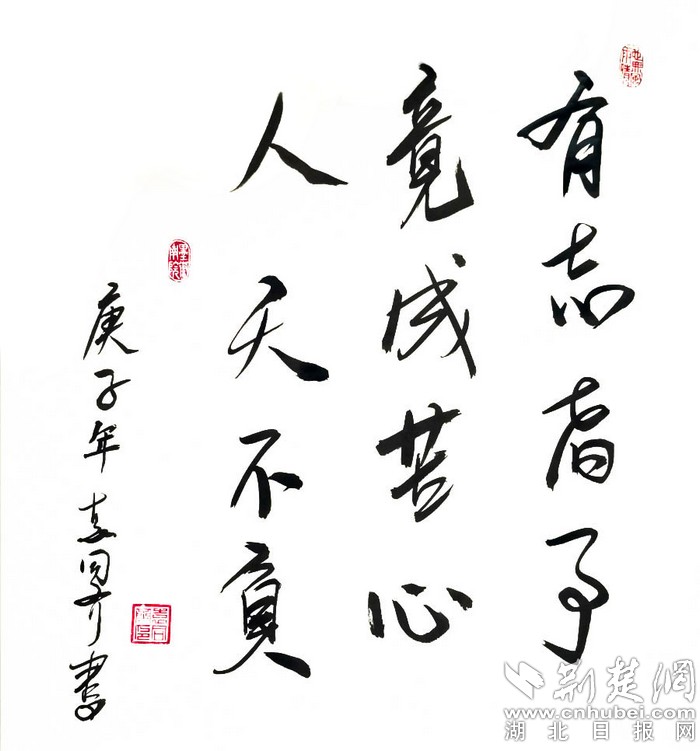 有志者事
竟成苦心
人天不負
庚子年
書
荆楚網
www.cnhubei.com
湖北日报网